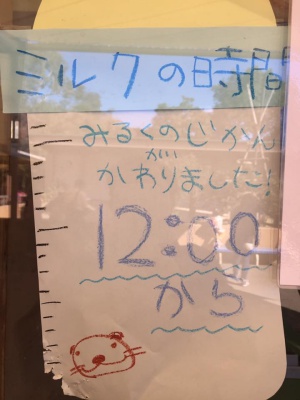 ミルクの時間
みるくのじかん
が
かわりました!
12:00
から